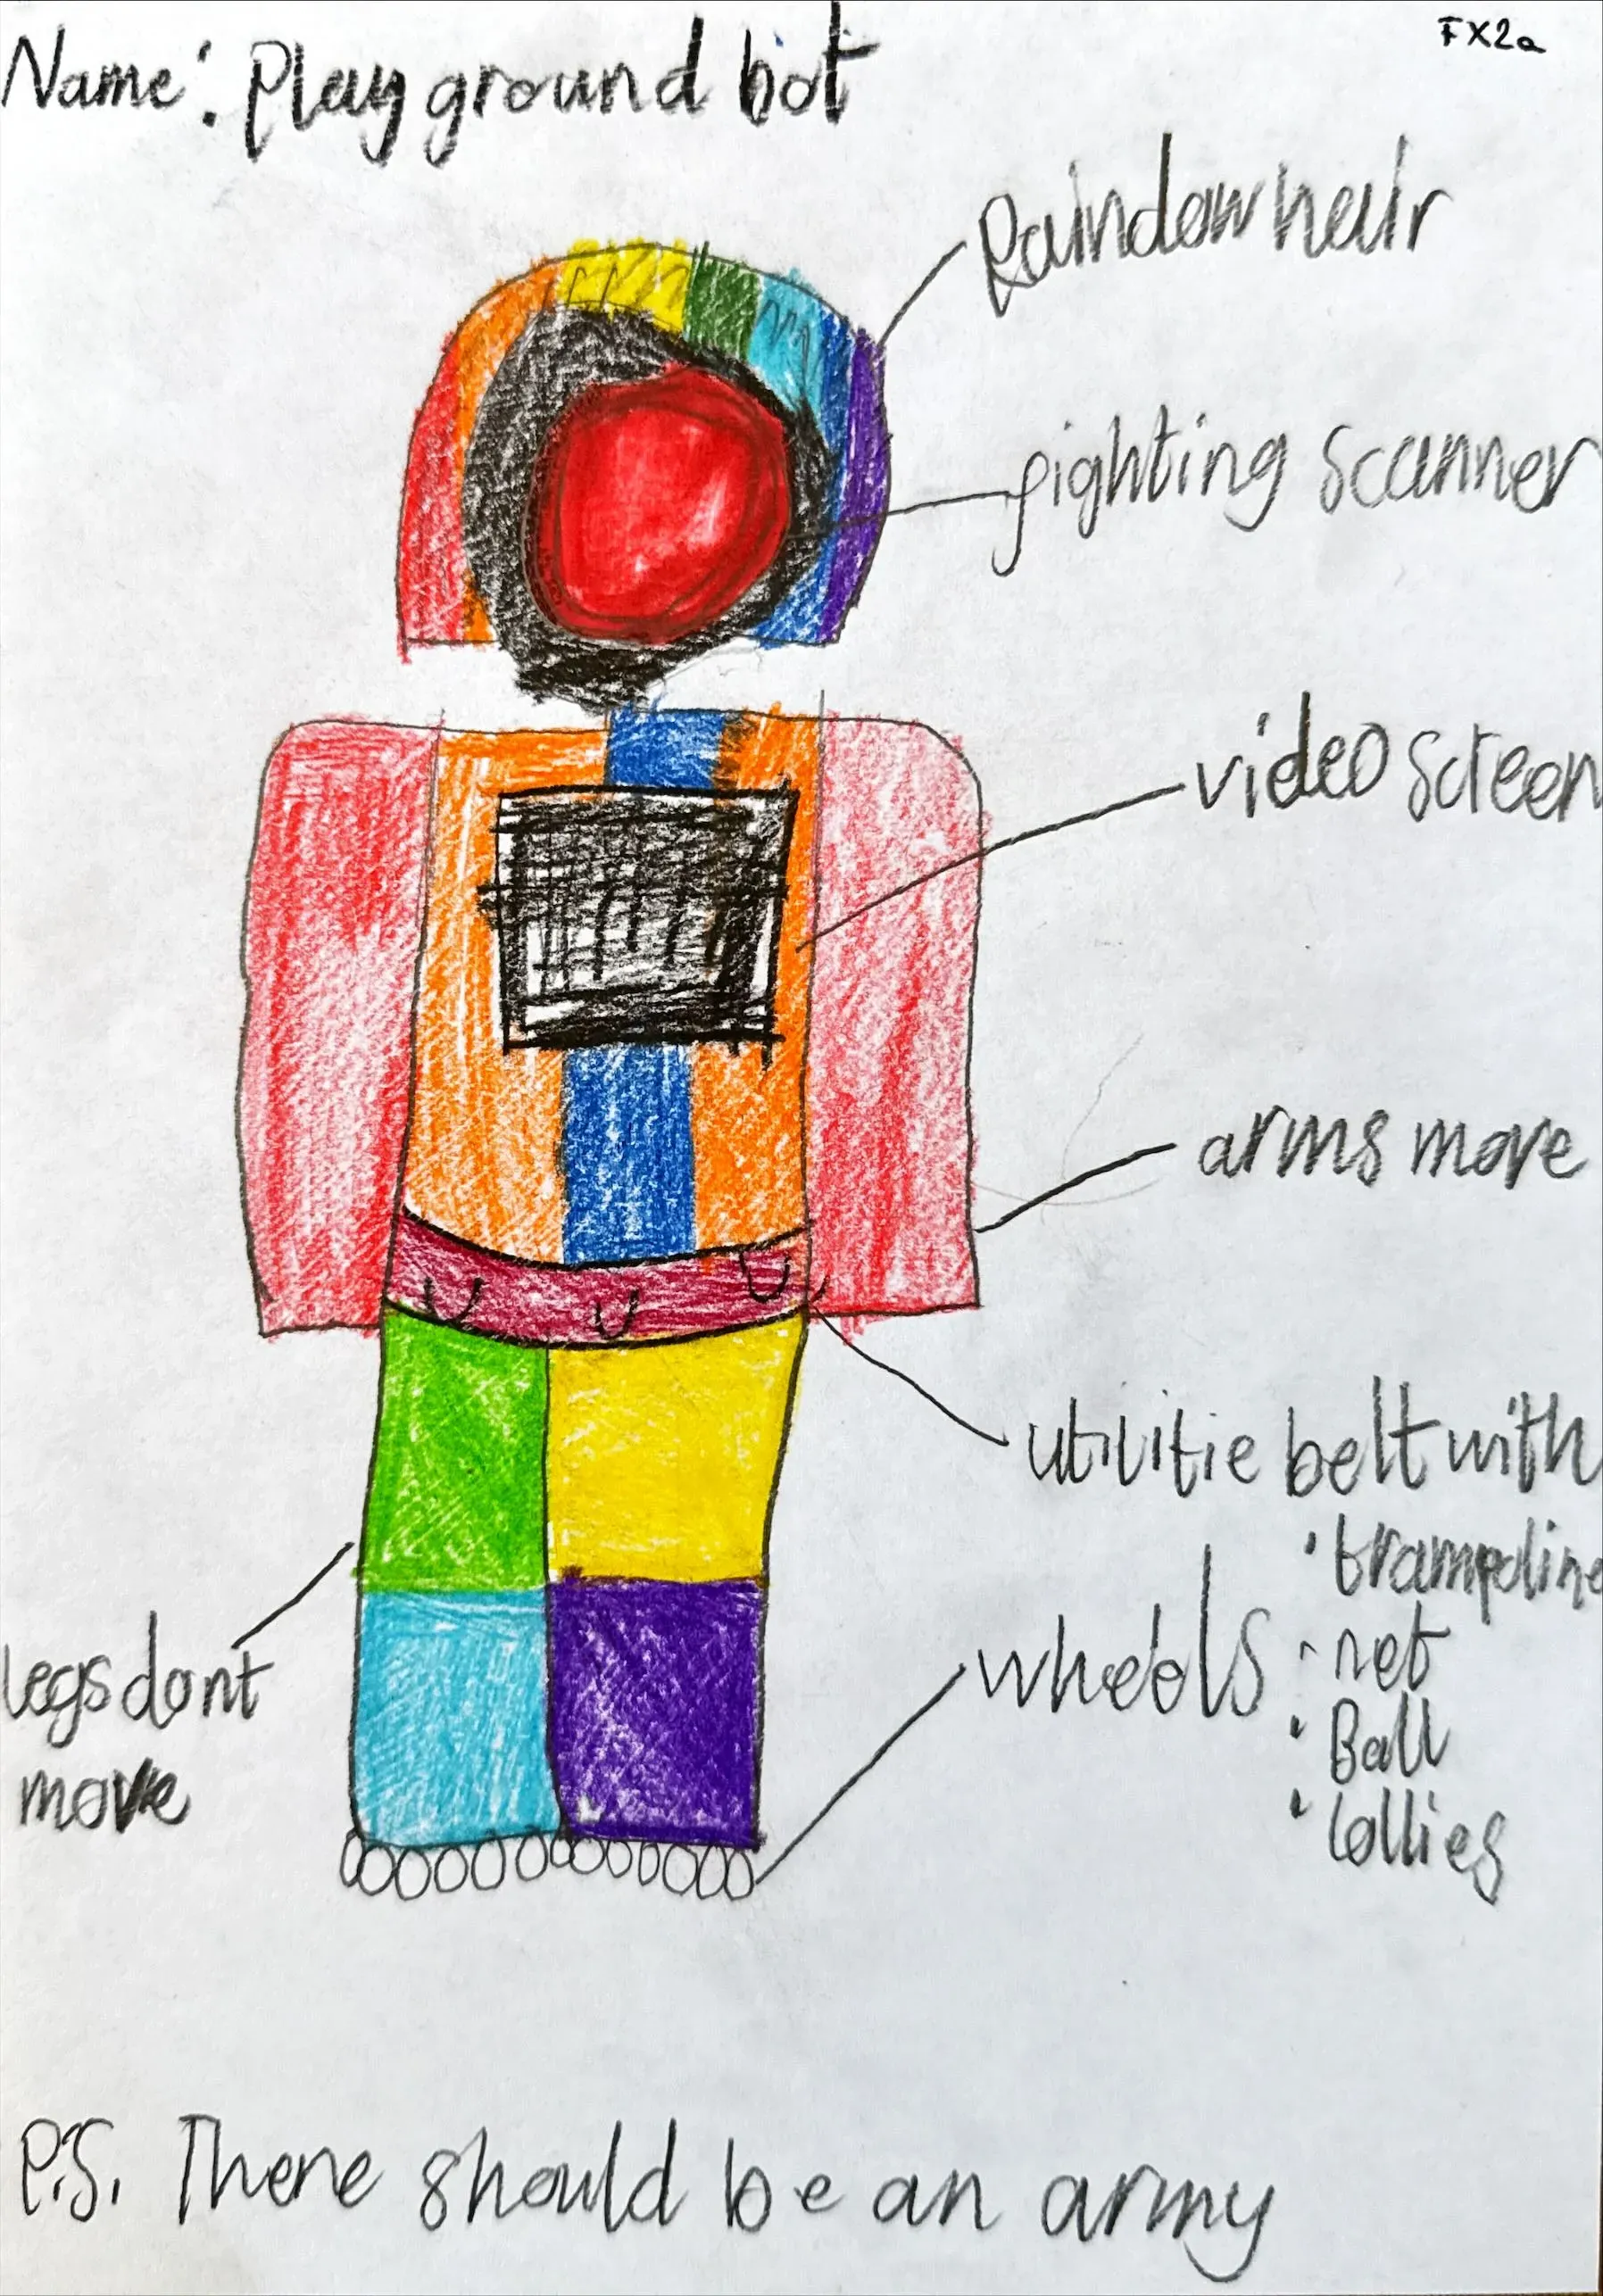 FX2a
Name: Playground bot
Raindow hair
fighting scanner
video screen
arms move
utilitie belt with
• trampoline
• net
• Ball
• lollies
wheels
legs dont
move
P.S. There should be an army